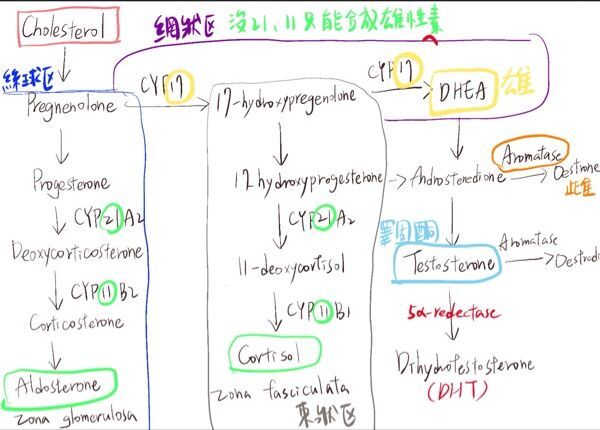 Cholesterol
網狀区 沒21、11只能合成雄性素
絲球区
CYP17
CYP17
Pregnenolone
17-hydroxypregenolone
DHEA 雄
Progesterone
12hydroxyprogesterone
Androstenedione
Aromatase
Oestrone
雌
CYP21A2
CYP21A2
睪固酮
Deoxycorticosterone
11-deoxycortisol
Testosterone
Aromatase
Oestradi
CYP11B2
CYP11B1
5α-reductase
Corticosterone
Cortisol
Dihydrotestosterone
(DHT)
Aldosterone
zona glomerulosa
zona fasciculata
束狀区